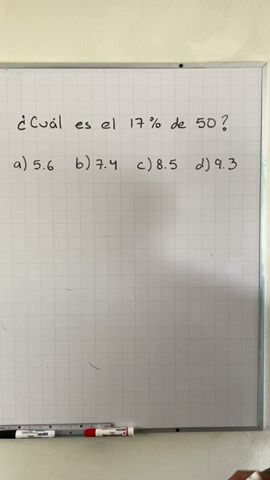 ¿Cuál es el 17% de 50?
a) 5.6 b) 7.4 c) 8.5 d) 9.3